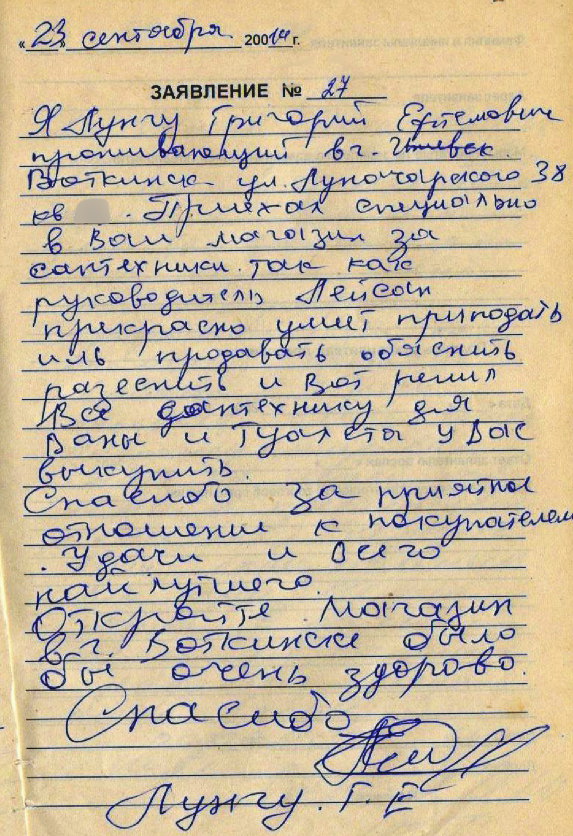 « 23 » сентября 200 14 г.
ЗАЯВЛЕНИЕ № 27
Я Лунгу Григорий Ефтемович
проживающий в г.
Воткинск ул. Луночарского 38
кв . Приехал специально
в Ваш магазин за
сантехники. так как
руководитель Лейсан
прекрасно умеет приподать
иль продавать обяснить
разеснить и Вот решил
Всё сантехнику для
Ваны и Туалета у Вас
выкупить.
Спасибо за приятное
отношении к покупателем
. Удачи и Всего
найлутшего.
Откройте магазин
в г. Воткинске было
бы очень здорово.
Спасибо
Лунгу. Г. Е